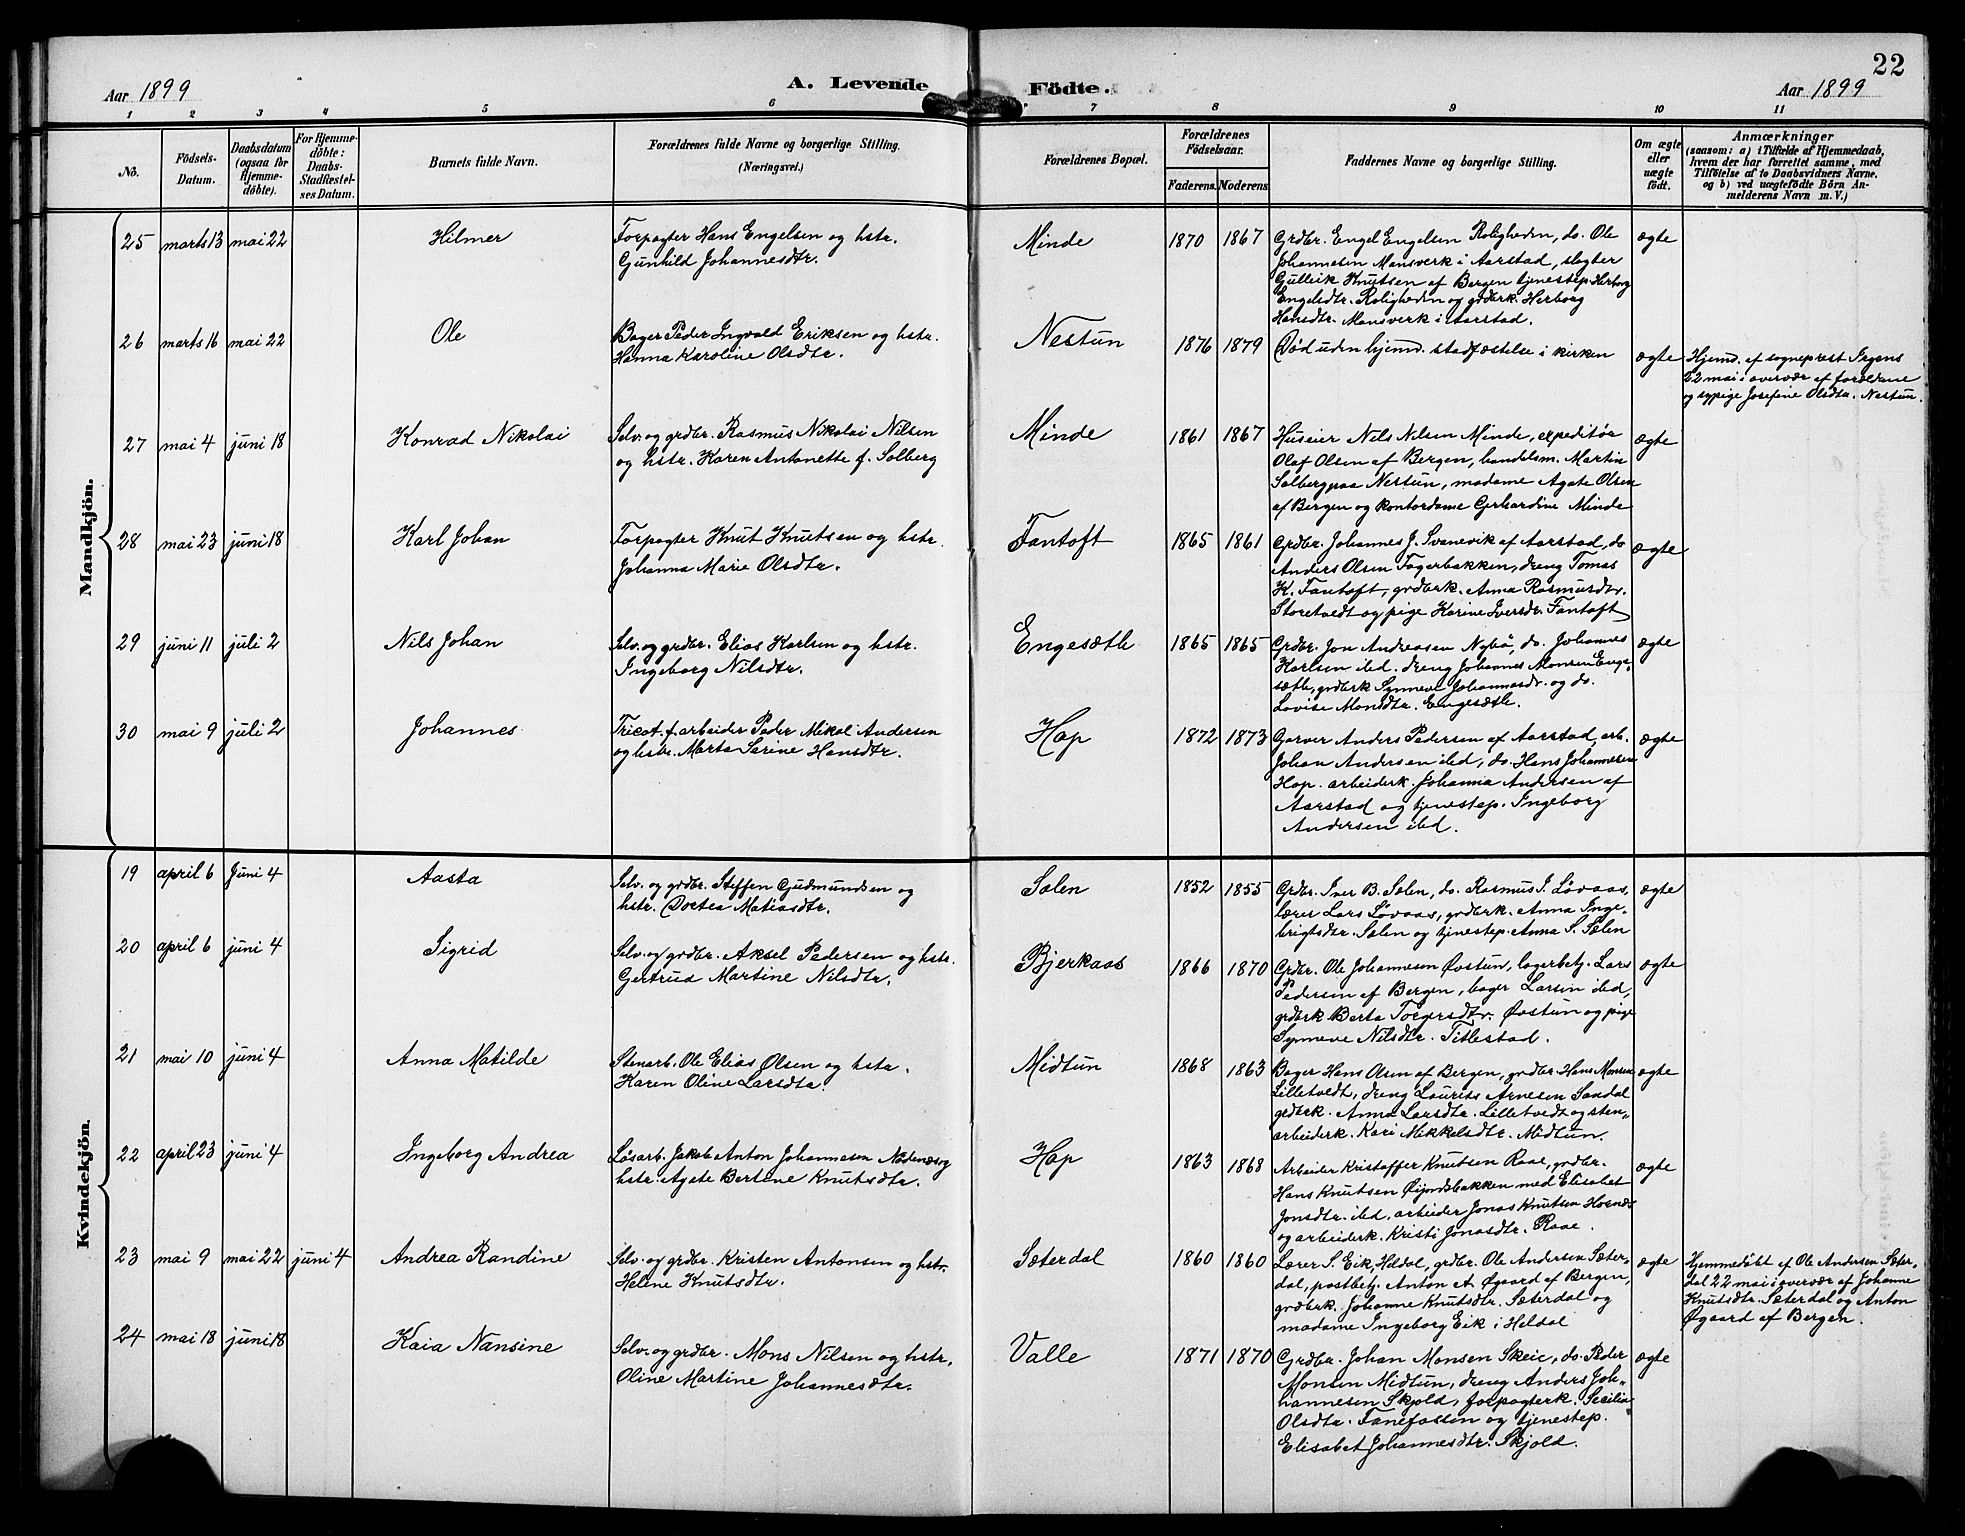 22
Aar 1899
A. Levende Födte.
Aar 1899
1 2 3 4 5 6 7 8 9 10 11
No.
Födsels-
Datum.
Daabsdatum
(ogsaa for
Hjemme-
döbte).
For Hjemme-
döbte:
Daabs-
Stadfæstel-
ses Datum.
Barnets fulde Navn.
Forældrenes fulde Navne og borgerlige Stilling.
(Næringsvei.)
Forældrenes Bopæl.
Forældrenes
Födselsaar.
Faderens. Moderens.
Faddernes Navne og borgerlige Stilling.
Om ægte
eller
uægte
födt.
Anmærkninger
(saasom: a) i Tilfælde af Hjemmedaab,
hvem der har forrettet samme, med
Tilföielse af to Daabsvidners Navne,
og b) ved uægtefödte Börn An-
melderens Navn m. V.)
Mandkjön.
25 marts 13 mai 22 Hilmer
Forpagter Hans Engelsen og hstr.
Gunhild Johannesdtr.
Minde 1870 1867
Grdbr. Engel Engelsen Roligheden, do. Ole
Johannesen Mansverk i Aarstad, slagter
Gulleik Knutsen af Bergen tjenestep. Herborg
Engelsdtr. Roligheden og grdbrk. Herborg
Hansdtr. Mansverk i Aarstad.
ægte
26 marts 16 mai 22 Ole
Bager Peder Ingvald Eriksen og hstr.
Hanna Karoline Olsdtr.
Nestun 1876 1879
Död uden hjemd. stadfæstelse i kirken
ægte
Hjemd. af sogneprest Irgens
22 mai i overvær af forældrene
og sypige Josefine Olsdtr. Nestun.
27 mai 4 juni 18 Konrad Nikolai
Selv. og grdbr. Rasmus Nikolai Nilsen
og hstr. Karen Antonette f. Solberg
Minde 1861 1867
Huseier Nils Nilsen Minde, expeditör
Olaf Olsen af Bergen, handelsm. Martin
Solberg paa Nestun, madame Agate Olsen
af Bergen og kontordame Gerhardine Minde
ægte
28 mai 23 juni 18 Karl Johan
Forpagter Knut Knutsen og hstr.
Johanna Marie Olsdtr.
Fantoft 1865 1861
Grdbr. Johannes J. Svanevik af Aarstad, do
Anders Olsen Fagerbakken, dreng Tomas
K. Fantoft, grdbrk. Anna Rasmusdtr.
Storetvedt og pige Karine Iversdtr. Fantoft
ægte
29 juni 11 juli 2 Nils Johan
Selv. og grdbr. Elias Karlsen og hstr.
Ingeborg Nilsdtr.
Engesætle 1865 1865
Grdbr. Jon Andreasen Nybö, do. Johannes
Karlsen ibd. dreng Johannes Monsen Enge-
sætle, grdbrk Synneve Johannesdtr. og do.
Lovise Monsdtr. Engesætle.
ægte
30 mai 9 juli 2 Johannes
Tricot. f. arbeider Peder Mikal Andersen
og hstr. Marta Serine Hansdtr.
Hop 1872 1873
Garver Anders Pedersen af Aarstad, arb.
Johan Andersen ibd, do. Hans Johannesen
Hop. arbeiderk. Johanna Andersen af
Aarstad og tjenestep. Ingeborg
Andersen ibd.
ægte
Kvindekjön.
19 april 6 Juni 4 Aasta
Selv. og grdbr. Steffen Gudmundsen og
hstr. Dortea Matiasdtr.
Sælen 1852 1855
Grdbr. Iver B. Sælen, do. Rasmus J. Lövaas,
lærer Lars Lövaas, grdbrk. Anna Inge-
brigtsdtr. Sælen og tjenestep. Anna S. Sælen
ægte
20 april 6 juni 4 Sigrid
Selv. og grdbr. Aksel Pedersen og hstr.
Gertrud Martine Nilsdtr.
Bjerkaas 1866 1870
Grdbr. Ole Johannesen Övstun, lagerbetj. Lars
Pedersen af Bergen, bager Larsen ibd,
grdbrk Berta Torgersdtr. Övstun og pige
Synneve Nilsdtr. Titlestad.
ægte
21 mai 10 juni 4 Anna Matilde
Stenarb. Ole Elias Olsen og hstr.
Karen Oline Larsdtr.
Midtun 1868 1863
Bager Hans Olsen af Bergen, grdbr. Hans Monsen
Lilletvedt, dreng Laurits Arnesen Sandal
grdbrk. Anna Larsdtr. Lilletvedt og sten-
arbeiderk. Kari Mikkelsdtr. Midtun.
ægte
22 april 23 juni 4 Ingeborg Andrea
Lösarb. Jakob Anton Johannesen Nödenes og
hstr. Agate Bertine Knutsdtr.
Hop 1863 1868
Arbeider Kristoffer Knutsen Raae, grdbr.
Hans Knutsen Öijordsbakken med Elisabet
Jonsdtr. ibd, arbeider Jonas Knutsen Hornes
og arbeiderk. Kristi Jonasdtr. Raae.
ægte
23 mai 9 mai 22 juni 4 Andrea Randine
Selv. og grdbr. Kristen Antonsen og hstr.
Heline Knutsdtr.
Sæterdal 1860 1860
Lærer S. Eik, Hildal, grdbr. Ole Andersen Sæter-
dal, postbetj. Anton A. Øgaard af Bergen,
grdbrk. Johanne Knutsdtr. Sæterdal og
madame Ingeborg Eik i Heldal
ægte
Hjemmedöbt af Ole Andersen Sæter-
dal 22 mai i overvær af Johanne
Knutsdtr. Sæterdal og Anton
Øgaard af Bergen.
24 mai 18 juni 18 Kaia Nansine
Selv. og grdbr. Mons Nilsen og hstr.
Oline Martine Johannesdtr.
Valle 1871 1870
Grdbr. Johan Monsen Skeie, do. Peder
Monsen Midtun, dreng Anders Joh-
hannesen Skjold, forpagterk. Secilia
Olsdtr. Fanefossen og tjenestep.
Elisabet Johannesdtr. Skjold.
ægte